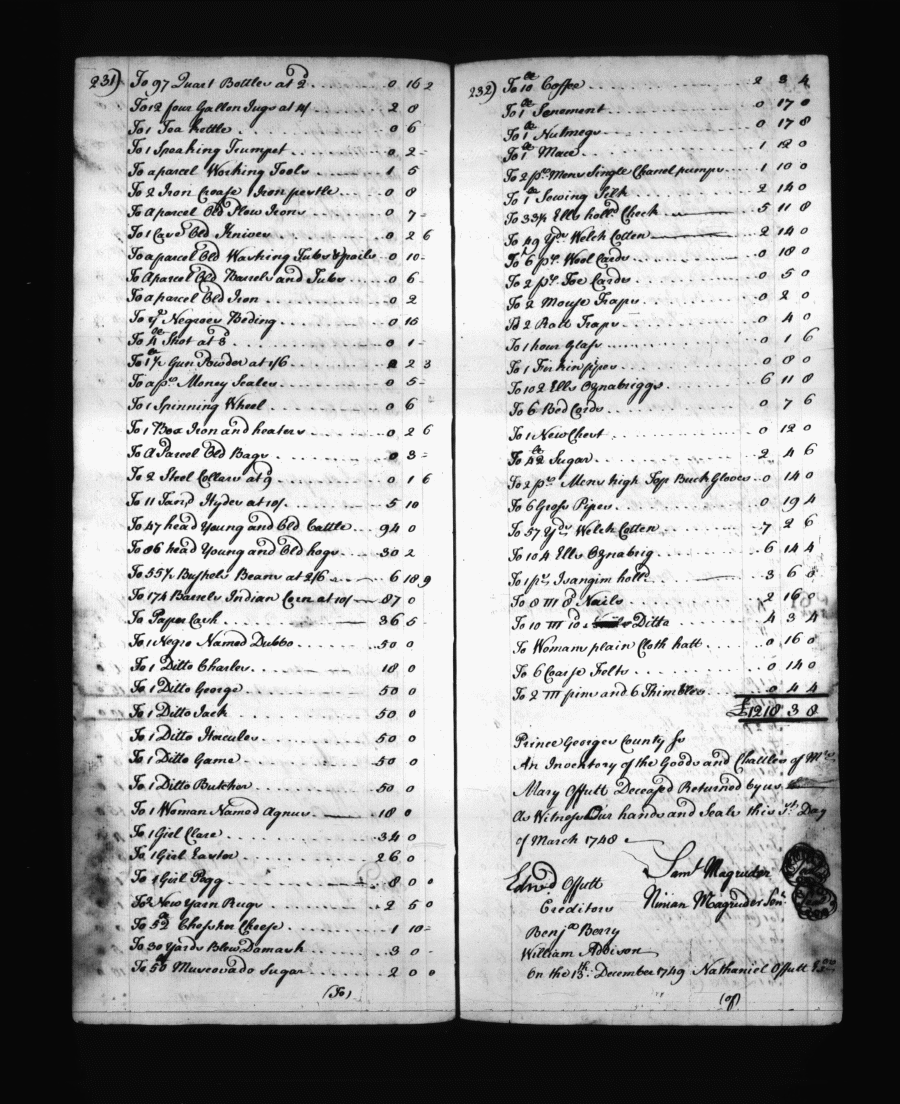 231) To 97 Quart Bottles at 2d 0 16 2
To 12 four Gallon Jugs at 4/ 2 8
To 1 Tea kettle 0 6
To 1 Speaking Trumpet 0 2 -
To a parcel Working Tools 1 5
To 2 Iron Crease 1 Iron pestle 0 8
To a parcel Old Plow Irons 0 7 -
To 1 Case Old Knives 0 2 6
To a parcel Old Washing Tubs & pails 0 10 -
To A parcel Old Barrels and Tubs 0 6 -
To a parcel Old Iron 0 2
To ye Negroes Beding 0 15
To 4 lb Shot at 3 0 1 -
To 1½ lb Gun Powder at 1/6 0 2 3
To a pr Money Scales 0 5 -
To 1 Spinning Wheel 0 6
To 1 Box Iron and heaters 0 2 6
To A Parcel Old Bags 0 3 -
To 2 Steel Collars at 9 0 1 6
To 11 Tand Hydes at 10/ 5 10
To 47 head Young and Old Cattle 94 0
To 86 head Young and Old hogs 30 2
To 55½ Bushels Beans at 2/6 6 18 9
To 174 Barrels Indian Corn at 10/ 87 0
To Paper Cash 36 5
To 1 Negro Named Dubbo 50 0
To 1 Ditto Charles 18 0
To 1 Ditto George 50 0
To 1 Ditto Jack 50 0
To 1 Ditto Hercules 50 0
To 1 Ditto Game 50 0
To 1 Ditto Butcher 50 0
To 1 Woman Named Agnus 18 0
To 1 Girl Clare 34 0
To 1 Girl Easter 26 0
To 1 Girl Pegg 8 0 0
To 2 New Yarn Rugs 2 5 0
To 52 lb Cheshor Cheese 1 10 -
To 30 Yards Blew Damask 3 0 -
To 50 lb Muscovado Sugar 2 0 0
(To)
232) To 10 lb Coffee 2 3 4
To 1 lb 0 17 0
To 1 lb Nutmegs 0 17 8
To 1 lb Mace 1 12 0
To 2 pr Mens Single Chanel pumps 1 10 0
To 1 lb Sowing Silk 2 14 0
To 33½ Ells holld Check 5 11 8
To 49 Yds Welch Cotten 2 14 0
To 6 pr Wool Cards 0 18 0
To 2 pr Toe Cards 0 5 0
To 2 Mouse Traps 0 2 0
To 2 Ratt Traps 0 4 0
To 1 hour Glass 0 1 6
To 1 Firkin pipes 0 8 0
To 102 Ells Oznabriggs 6 11 8
To 6 Bed Cords 0 7 6
To 1 New Chest 0 12 0
To 42 lb Sugar 2 4 6
To 2 prs Mens high Top Buck Gloves 0 14 0
To 6 Gross Pipes 0 19 4
To 57 Yds Welch Cotten 7 2 6
To 104 Ells Oznabrig 6 14 4
To 1 ps Isangim holld 3 6 8
To 8 m 8d Nails 2 16 8
To 10 m 10d Ditto 4 3 4
To Womans plain Cloth hatt 0 16 0
To 6 Coarse Felts 0 14 0
To 2 m pins and 6 Thimbles 0 4 4
£1218 3 8
Prince Georges County Ss
An Inventory of the Goods and Chattles of Mrs
Mary Offutt Deceased Returned by us
As Witness Our hands and Seals this 3st Day
of March 1748
Saml Magruder
Edwd Offutt
Ninian Magruder Senr
Creditors
Benja Berry
William Addison
On the 13th December 1749 Nathaniel Offutt
(of)